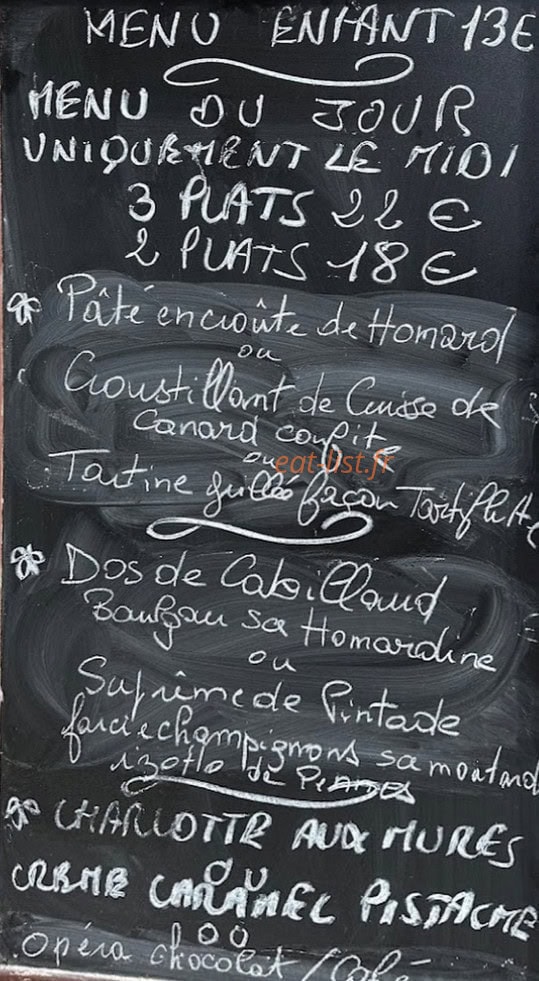 MENU ENFANT 13€
MENU DU JOUR
UNIQUEMENT LE MIDI
3 PLATS 22 €
2 PLATS 18 €
Pâté en croûte de Homard
ou
Croustillant de Cuisse de
Canard confite
ou
eat-list.fr
Tartine grillée façon Tartiflette
Dos de Cabillaud
sa Homardine
ou
Suprême de Pintade
farcie champignons sa moutard
rizotto de
CHARLOTTE AUX MURES
OU
CREME CARAMEL PISTACHE
OU
Opéra chocolat / Café